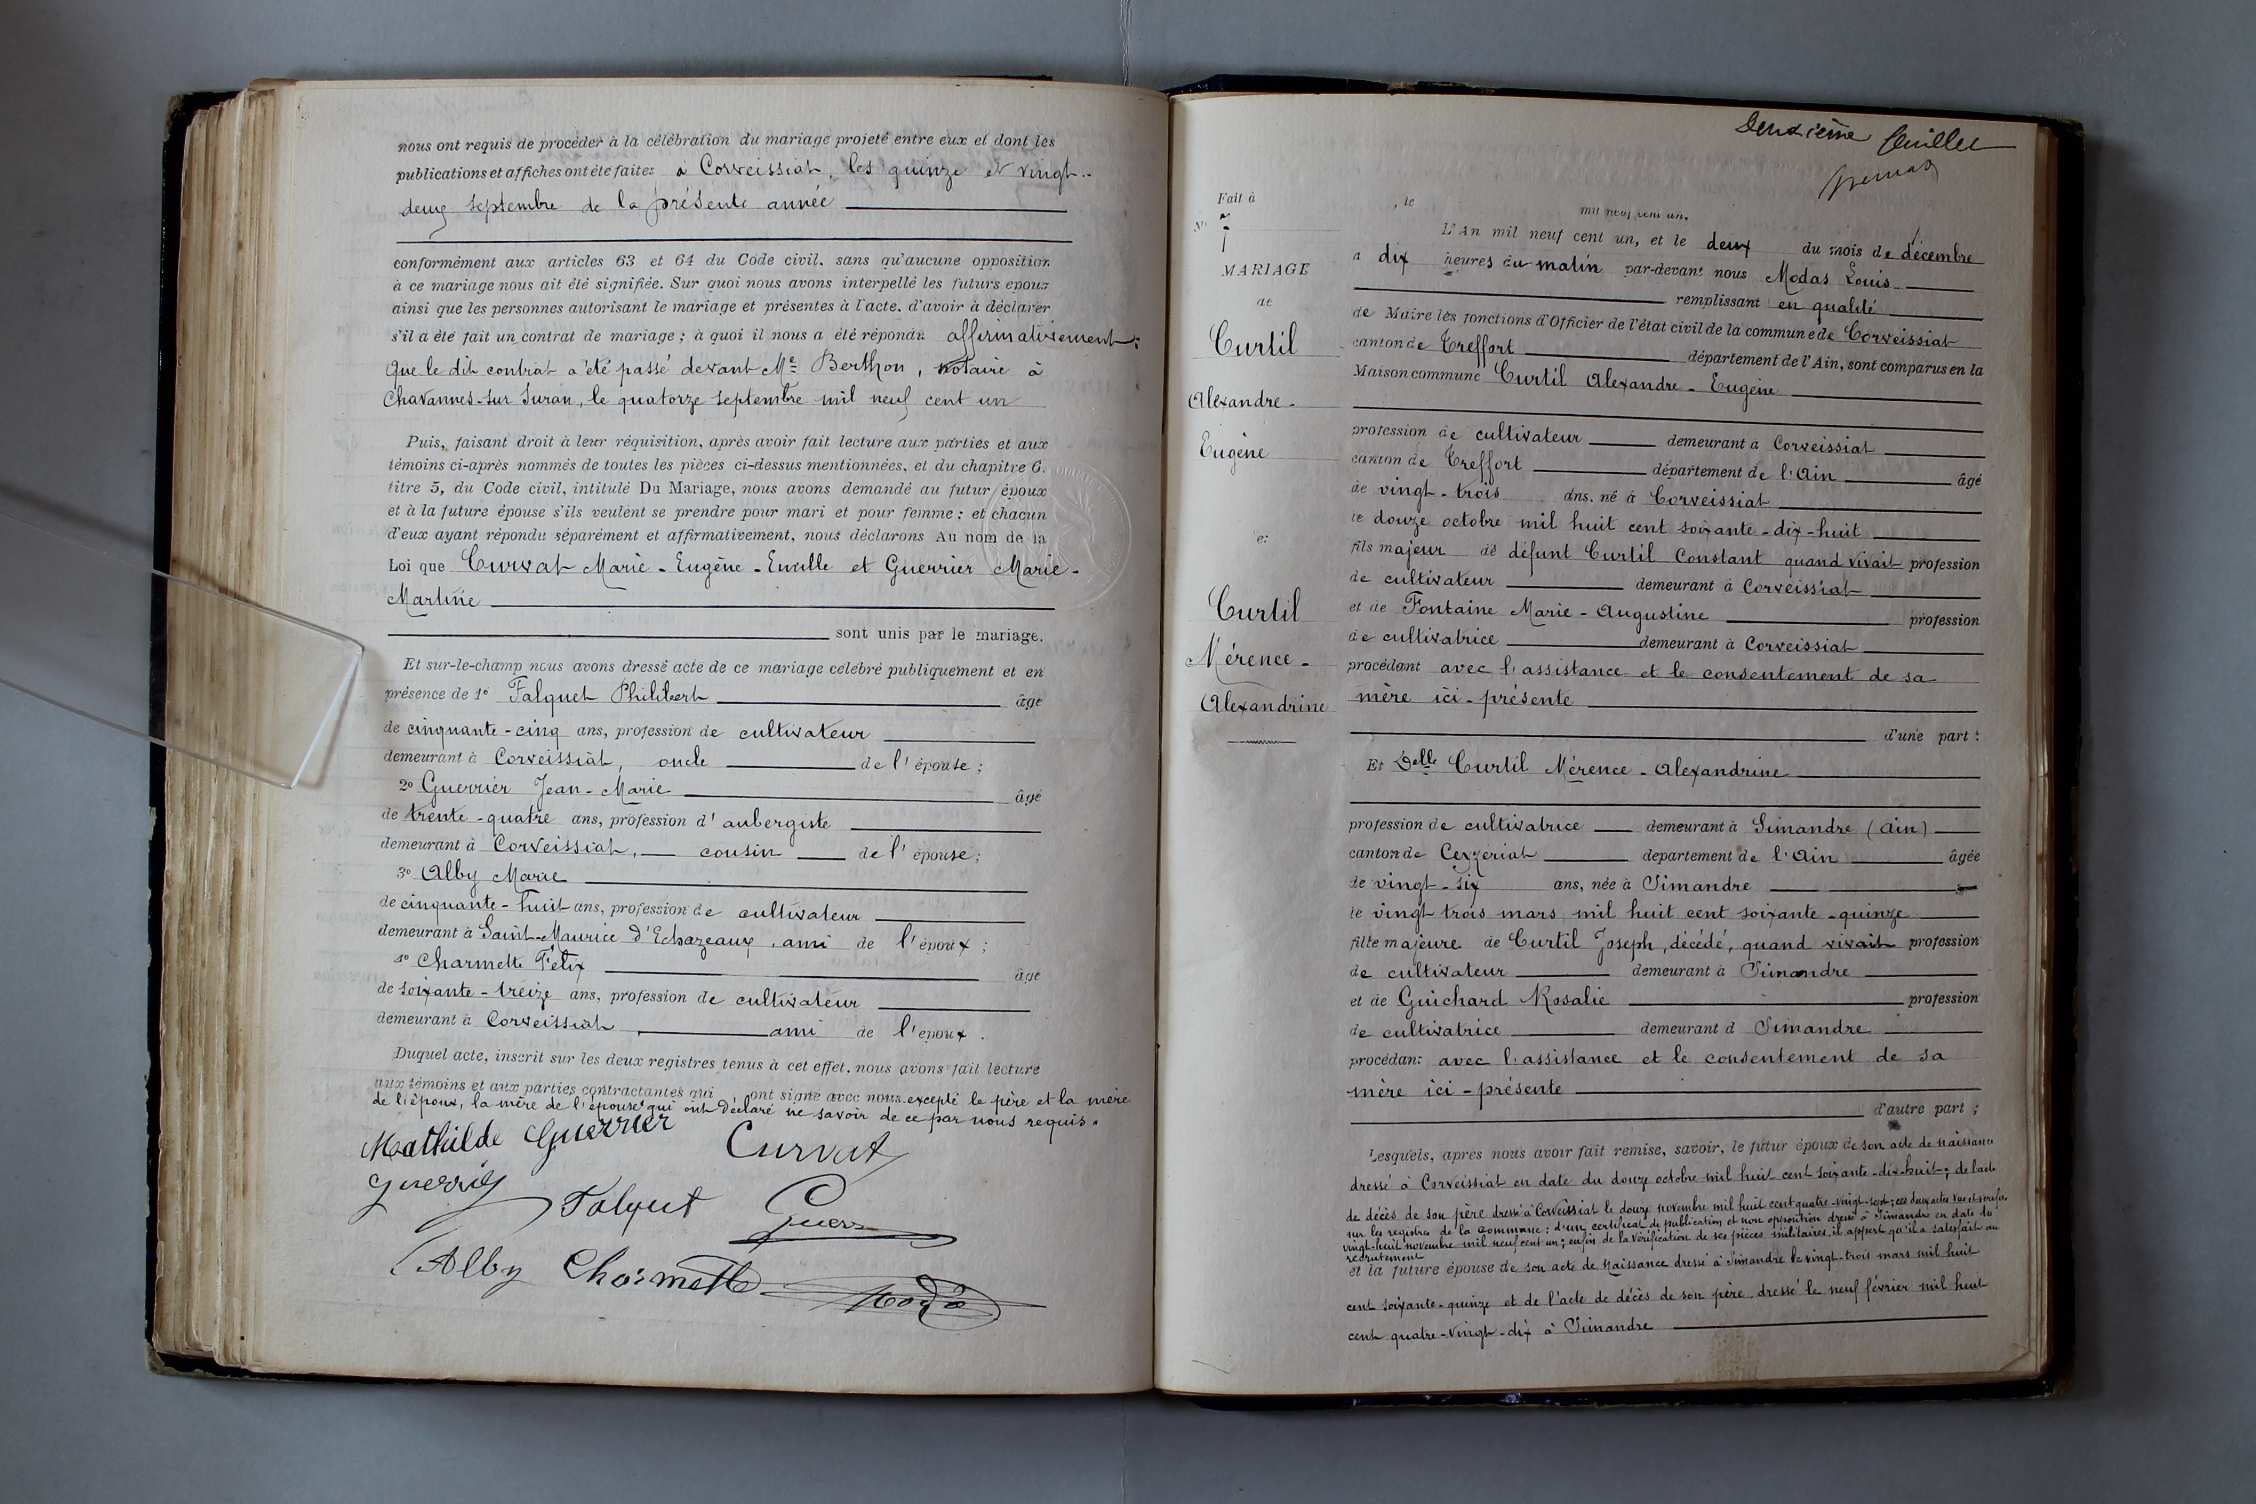 nous ont requis de procéder à la célébration du mariage projeté entre eux et dont les
publications et affiches ont été faites à Corveissiat, les quinze et vingt-
deux septembre de la présente année
conformément aux articles 63 et 64 du Code civil, sans qu'aucune opposition
à ce mariage nous ait été signifiée. Sur quoi nous avons interpellé les futurs epoux
ainsi que les personnes autorisant le mariage et présentes à l'acte, d'avoir à déclarer
s'il a été fait un contrat de mariage ; à quoi il nous a été répondu affirmativement :
que le dit contrat a été passé devant Me Berthon, notaire à
Chavannes-sur Suran, le quatorze septembre mil neuf cent un
Puis, faisant droit à leur réquisition, après avoir fait lecture aux parties et aux
témoins ci-après nommés de toutes les pièces ci-dessus mentionnées, et du chapitre 6,
titre 5, du Code civil, intitulé Du Mariage, nous avons demandé au futur époux
et à la future épouse s'ils veulent se prendre pour mari et pour femme ; et chacun
d'eux ayant répondu séparément et affirmativement, nous déclarons Au nom de la
Loi que Curvat Marie-Eugène-Emille et Guerrier Marie-
Martine
sont unis par le mariage.
Et sur-le-champ nous avons dressé acte de ce mariage célébré publiquement et en
présence de 1o Falquet Philibert âgé
de cinquante-cinq ans, profession de cultivateur
demeurant à Corveissiat, oncle de l'épouse ;
2o Guerrier Jean-Marie âgé
de trente-quatre ans, profession d'aubergiste
demeurant à Corveissiat, cousin de l'épouse ;
3o Alby Marie
de cinquante-huit ans, profession de cultivateur
demeurant à Saint-Maurice d'Echazeaux, ami de l'époux ;
4o Charmette Félix âgé
de soixante-treize ans, profession de cultivateur
demeurant à Corveissiat, ami de l'époux.
Duquel acte, inscrit sur les deux registres tenus à cet effet, nous avons fait lecture
aux témoins et aux parties contractantes qui ont signé avec nous excepté le père et la mère
de l'époux, la mère de l'épouse qui ont déclaré ne savoir de ce par nous requis.
Mathilde Guerrier Curvat
Falquet Guerr
Alby Charmette
Deuxième feuillet
Fait à , le
mil neuf cent un.
No 7
MARIAGE
de
Curtil
Alexandre-
Eugène
et
Curtil
Mérence-
Alexandrine
L'An mil neuf cent un, et le deux du mois de décembre
à dix heures du matin par-devant nous Modas Louis
remplissant en qualité
de Maire les fonctions d'Officier de l'état civil de la commune de Corveissiat
canton de Treffort département de l'Ain, sont comparus en la
Maison commune Curtil Alexandre-Eugène
profession de cultivateur demeurant à Corveissiat
canton de Treffort département de l'Ain âgé
de vingt-trois ans, né à Corveissiat
le douze octobre mil huit cent soixante-dix-huit
fils majeur de défunt Curtil Constant quand vivait profession
de cultivateur demeurant à Corveissiat
et de Fontaine Marie-Augustine profession
de cultivatrice demeurant à Corveissiat
procédant avec l'assistance et le consentement de sa
mère ici-présente
d'une part :
Et Delle Curtil Mérence-Alexandrine
profession de cultivatrice demeurant à Simandre (Ain)
canton de Ceyzeriat département de l'Ain âgée
de vingt-six ans, née à Simandre
le vingt trois mars mil huit cent soixante-quinze
fille majeure de Curtil Joseph, décédé, quand vivait profession
de cultivateur demeurant à Simandre
et de Guichard Rosalie profession
de cultivatrice demeurant à Simandre
procédant avec l'assistance et le consentement de sa
mère ici-présente
d'autre part ;
Lesquels, après nous avoir fait remise, savoir, le futur époux de son acte de naissance
dressé à Corveissiat en date du douze octobre mil huit cent soixante-dix-huit ; de l'acte
de décès de son père dressé à Corveissiat le douze novembre mil huit cent quatre-vingt-sept ; ces deux actes vus et vérifiés
sur les registres de la Commune ; d'un certificat de publication et non opposition dressé à Simandre en date du
vingt-huit novembre mil neuf cent un ; enfin de la vérification de ses pièces militaires, il appert qu'il a satisfait au
recrutement
et la future épouse de son acte de naissance dressé à Simandre le vingt-trois mars mil huit
cent soixante-quinze et de l'acte de décès de son père, dressé le neuf février mil huit
cent quatre-vingt-dix à Simandre